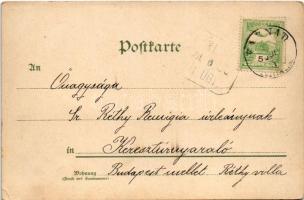 Postkarte
An
Őnagysága
Sz. Réthy Remigia úrleánynak
in
Keresztúrnyaraló
Wohnung
(Strasse und Hausnummer)
Budapest mellett. Réthy villa